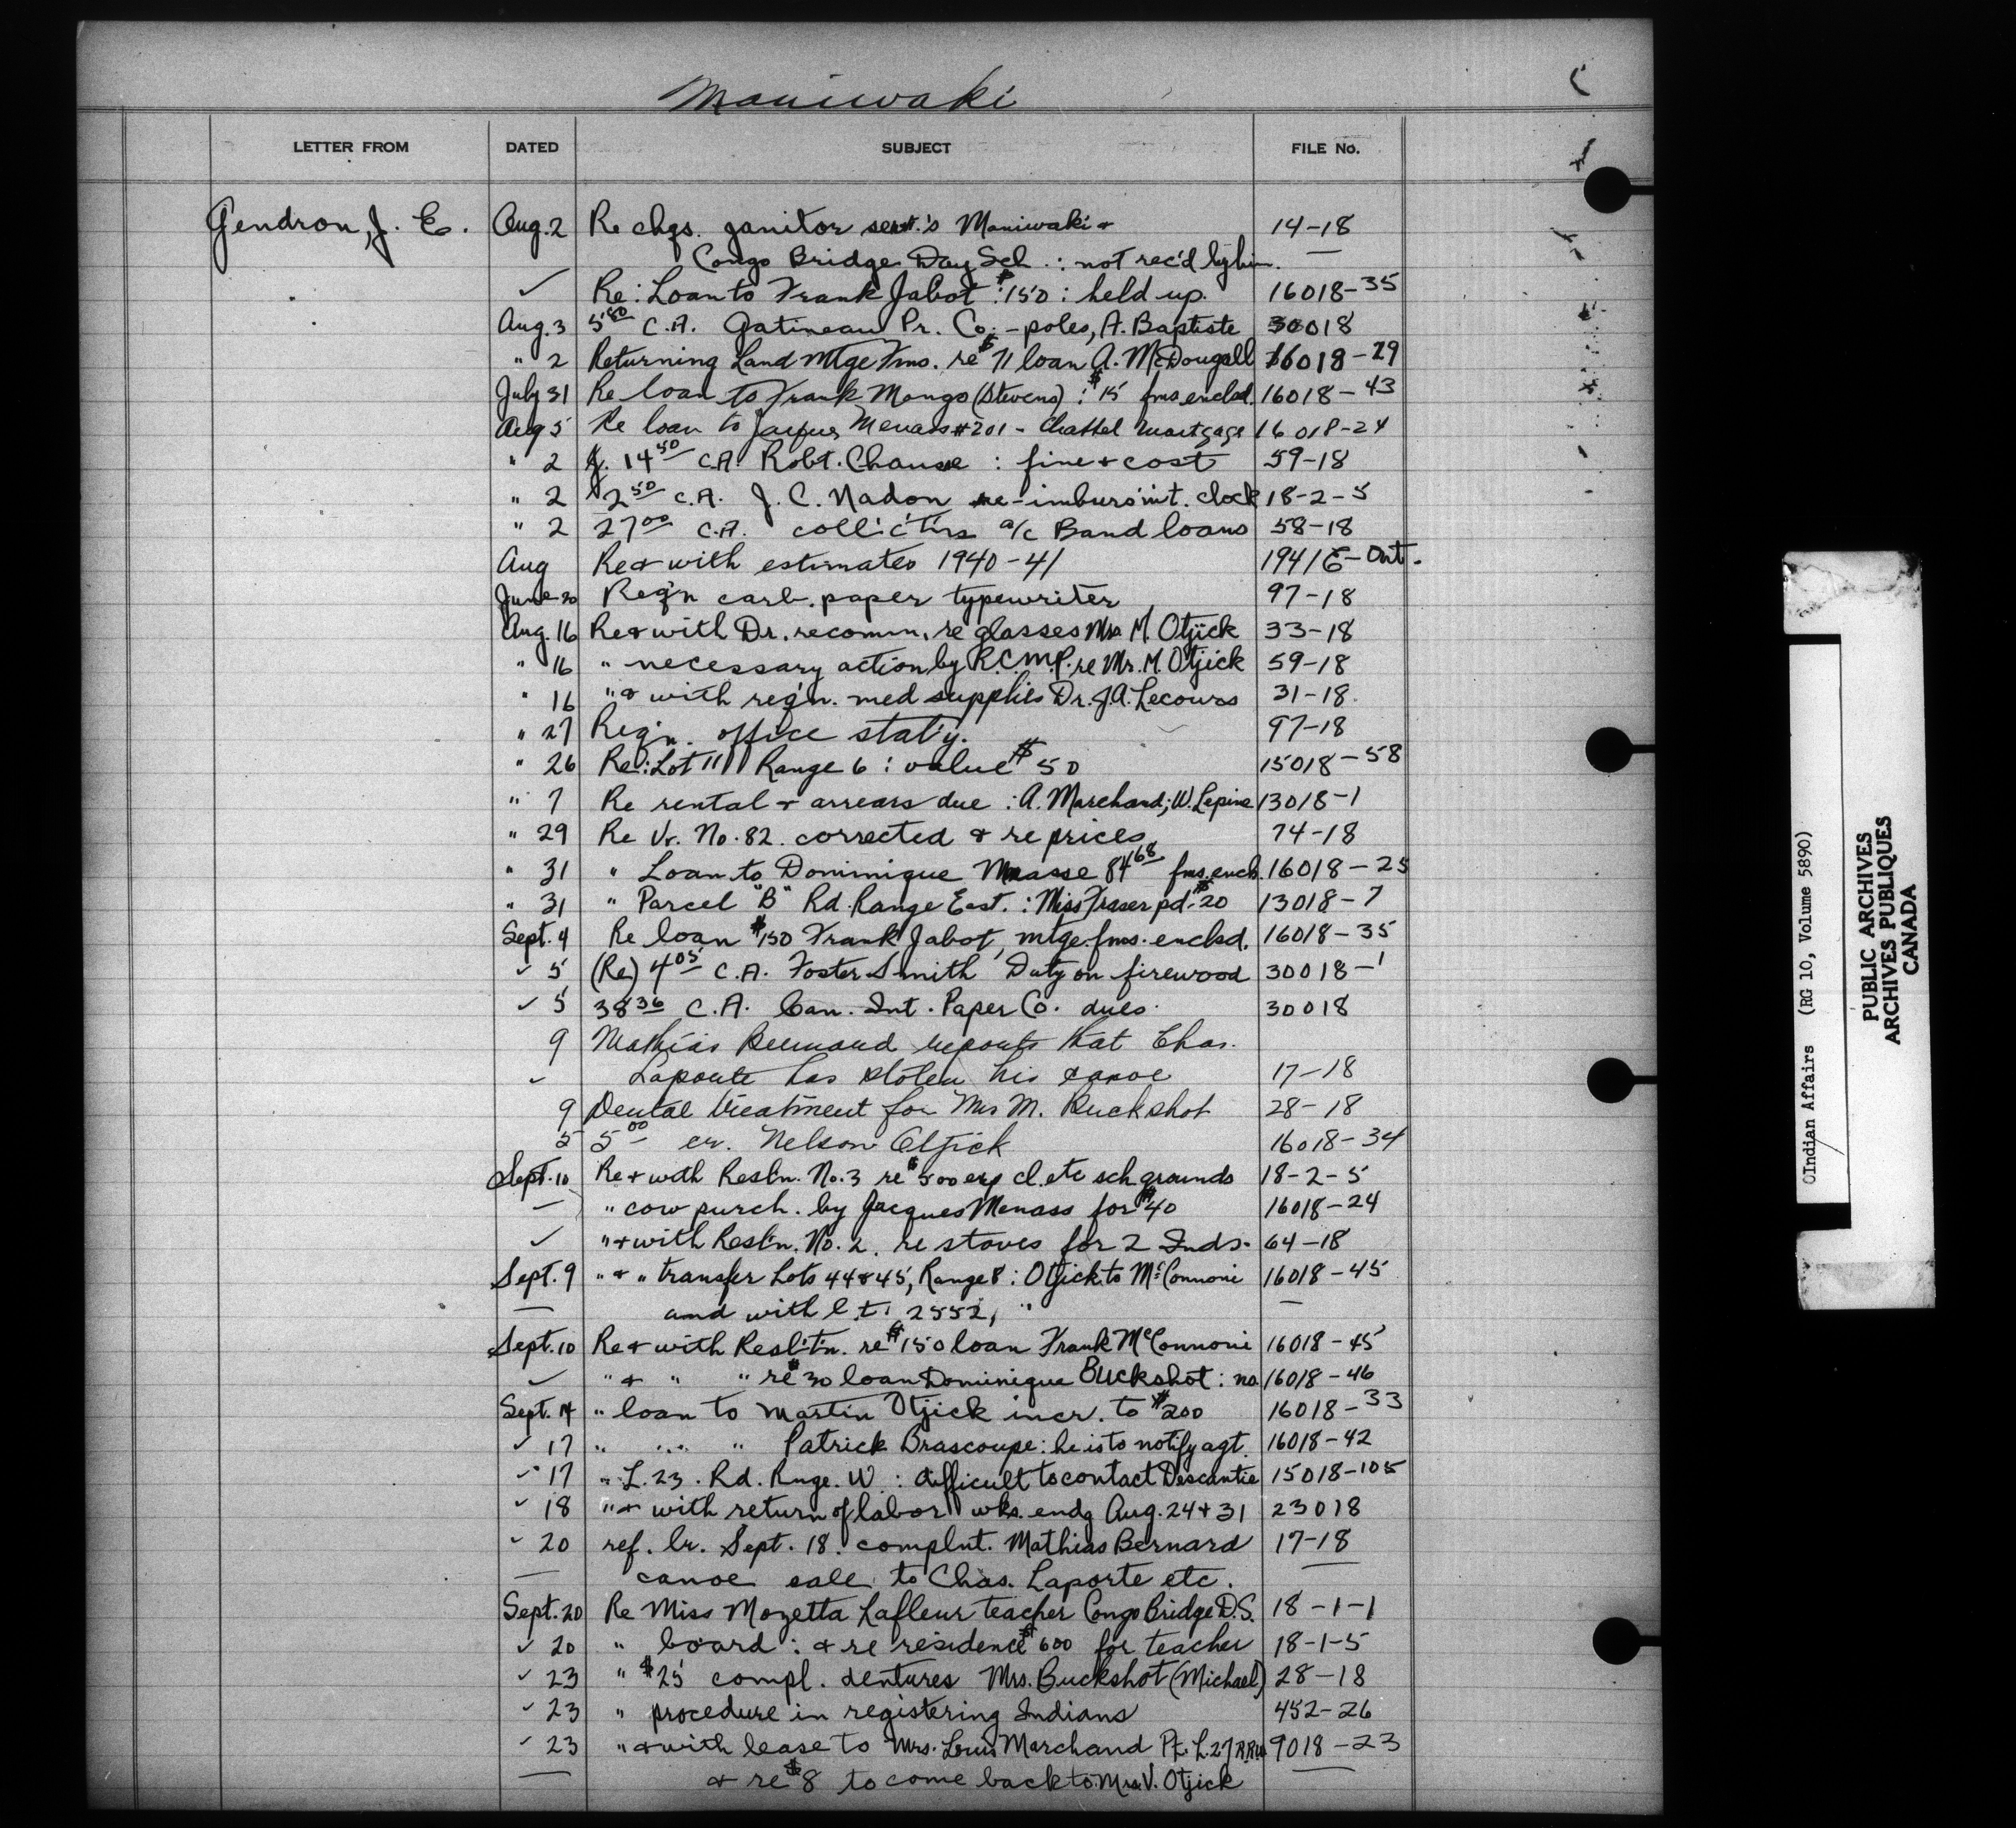 Maniwaki
LETTER FROM DATED SUBJECT FILE No.
Gendron, J. E. Aug. 2 Re chgs. janitor serv.'s Maniwaki + 14-18
Congo Bridge Day Sch.: not rec'd by him. —
✓ Re: Loan to Frank Jabot: $150: held up. 16018-35
Aug. 3 5⁸⁰ C.A. Gatineau Pr. Co. - poles, A. Baptiste 30018
" 2 Returning Land Mtge Fms. re $71 loan A. McDougall 16018-29
July 31 Re loan to Frank Mongo (Stevens): $15 fms enclsd. 16018-43
Aug 5 Re loan to Jacques Menass #201 - Chattel Mortgage 16018-24
" 2 14⁵⁰ C.A. Robt. Chausse: fine + cost 59-18
" 2 $2⁵⁰ C.A. J. C. Nadon re-imburs'm't. clock 18-2-5
" 2 27⁰⁰ C.A. collict'ns a/c Band loans 58-18
Aug Re + with estimates 1940-41 1941E-Ont.
June 20 Req'n carb. paper typewriter 97-18
Aug. 16 Re + with Dr. recomm. re glasses Mrs M. Otjick 33-18
" 16 " necessary action by R.C.M.P. re Mr. M. Otjick 59-18
" 16 " + with req'n. med supplies Dr. J.A. Lecours 31-18.
" 27 Req'n. office stat'y. 97-18
" 26 Re: Lot 11 Range 6: value $50 15018-58
" 7 Re rental + arrears due: A. Marchand; W. Lepine 13018-1
" 29 Re Vr. No. 82 corrected + re prices 74-18
" 31 " Loan to Dominique Menasse 84⁶⁸ fms. encls. 16018-25
" 31 " Parcel "B" Rd. Range East.: Miss Fraser pd. $20 13018-7
Sept. 4 Re loan $150 Frank Jabot, mtge. fms. enclsd. 16018-35
✓ 5 (Re) 4⁰⁵ C.A. Foster Smith Duty on firewood 30018-1
✓ 5 38³⁶ C.A. Can. Int. Paper Co. dues. 30018
9 Mathias Bernard reports that Chas.
✓ Laporte has stolen his canoe 17-18
9 Dental treatment for Mrs M. Buckshot 28-18
5 5⁰⁰ cr. Nelson Otjick 16018-34
Sept. 10 Re + with Resl'n. No. 3 re $500 exp cl. etc sch grounds 18-2-5
— " cow purch. by Jacques Menass for $40 16018-24
✓ " + with Resl'n. No. 2. re stoves for 2 Inds. 64-18
Sept. 9 " + " transfer Lots 44 & 45, Range 8: Otjick to McConnoni 16018-45
— and with l.t. 2552, " —
Sept. 10 Re + with Resl't'n. re $150 loan Frank McConnoni 16018-45
✓ " + " " re $30 loan Dominique Buckshot: no 16018-46
Sept. 14 " loan to Martin Otjick incr. to $200 16018-33
✓ 17 " " " Patrick Brascoupe: he is to notify agt. 16018-42
✓ 17 " L. 23. Rd. Rnge. W: difficult to contact Descantie 15018-105
✓ 18 " + with return of labor wks. endg Aug. 24 + 31 23018
✓ 20 ref. lr. Sept. 18. complnt. Mathias Bernard 17-18
— canoe sale to Chas. Laporte etc. —
Sept. 20 Re Miss Mozetta Lafleur teacher Congo Bridge D.S. 18-1-1
✓ 20 " board: + re residence $600 for teacher 18-1-5
✓ 23 " $25 compl. dentures Mrs. Buckshot (Michael) 28-18
✓ 23 " procedure in registering Indians 452-26
✓ 23 " + with lease to Mrs. Louis Marchand Pt. L. 27 R.R.W. 9018-23
— + re $8 to come back to Mrs V. Otjick —
OIndian Affairs (RG 10, Volume 5890)
PUBLIC ARCHIVES
ARCHIVES PUBLIQUES
CANADA